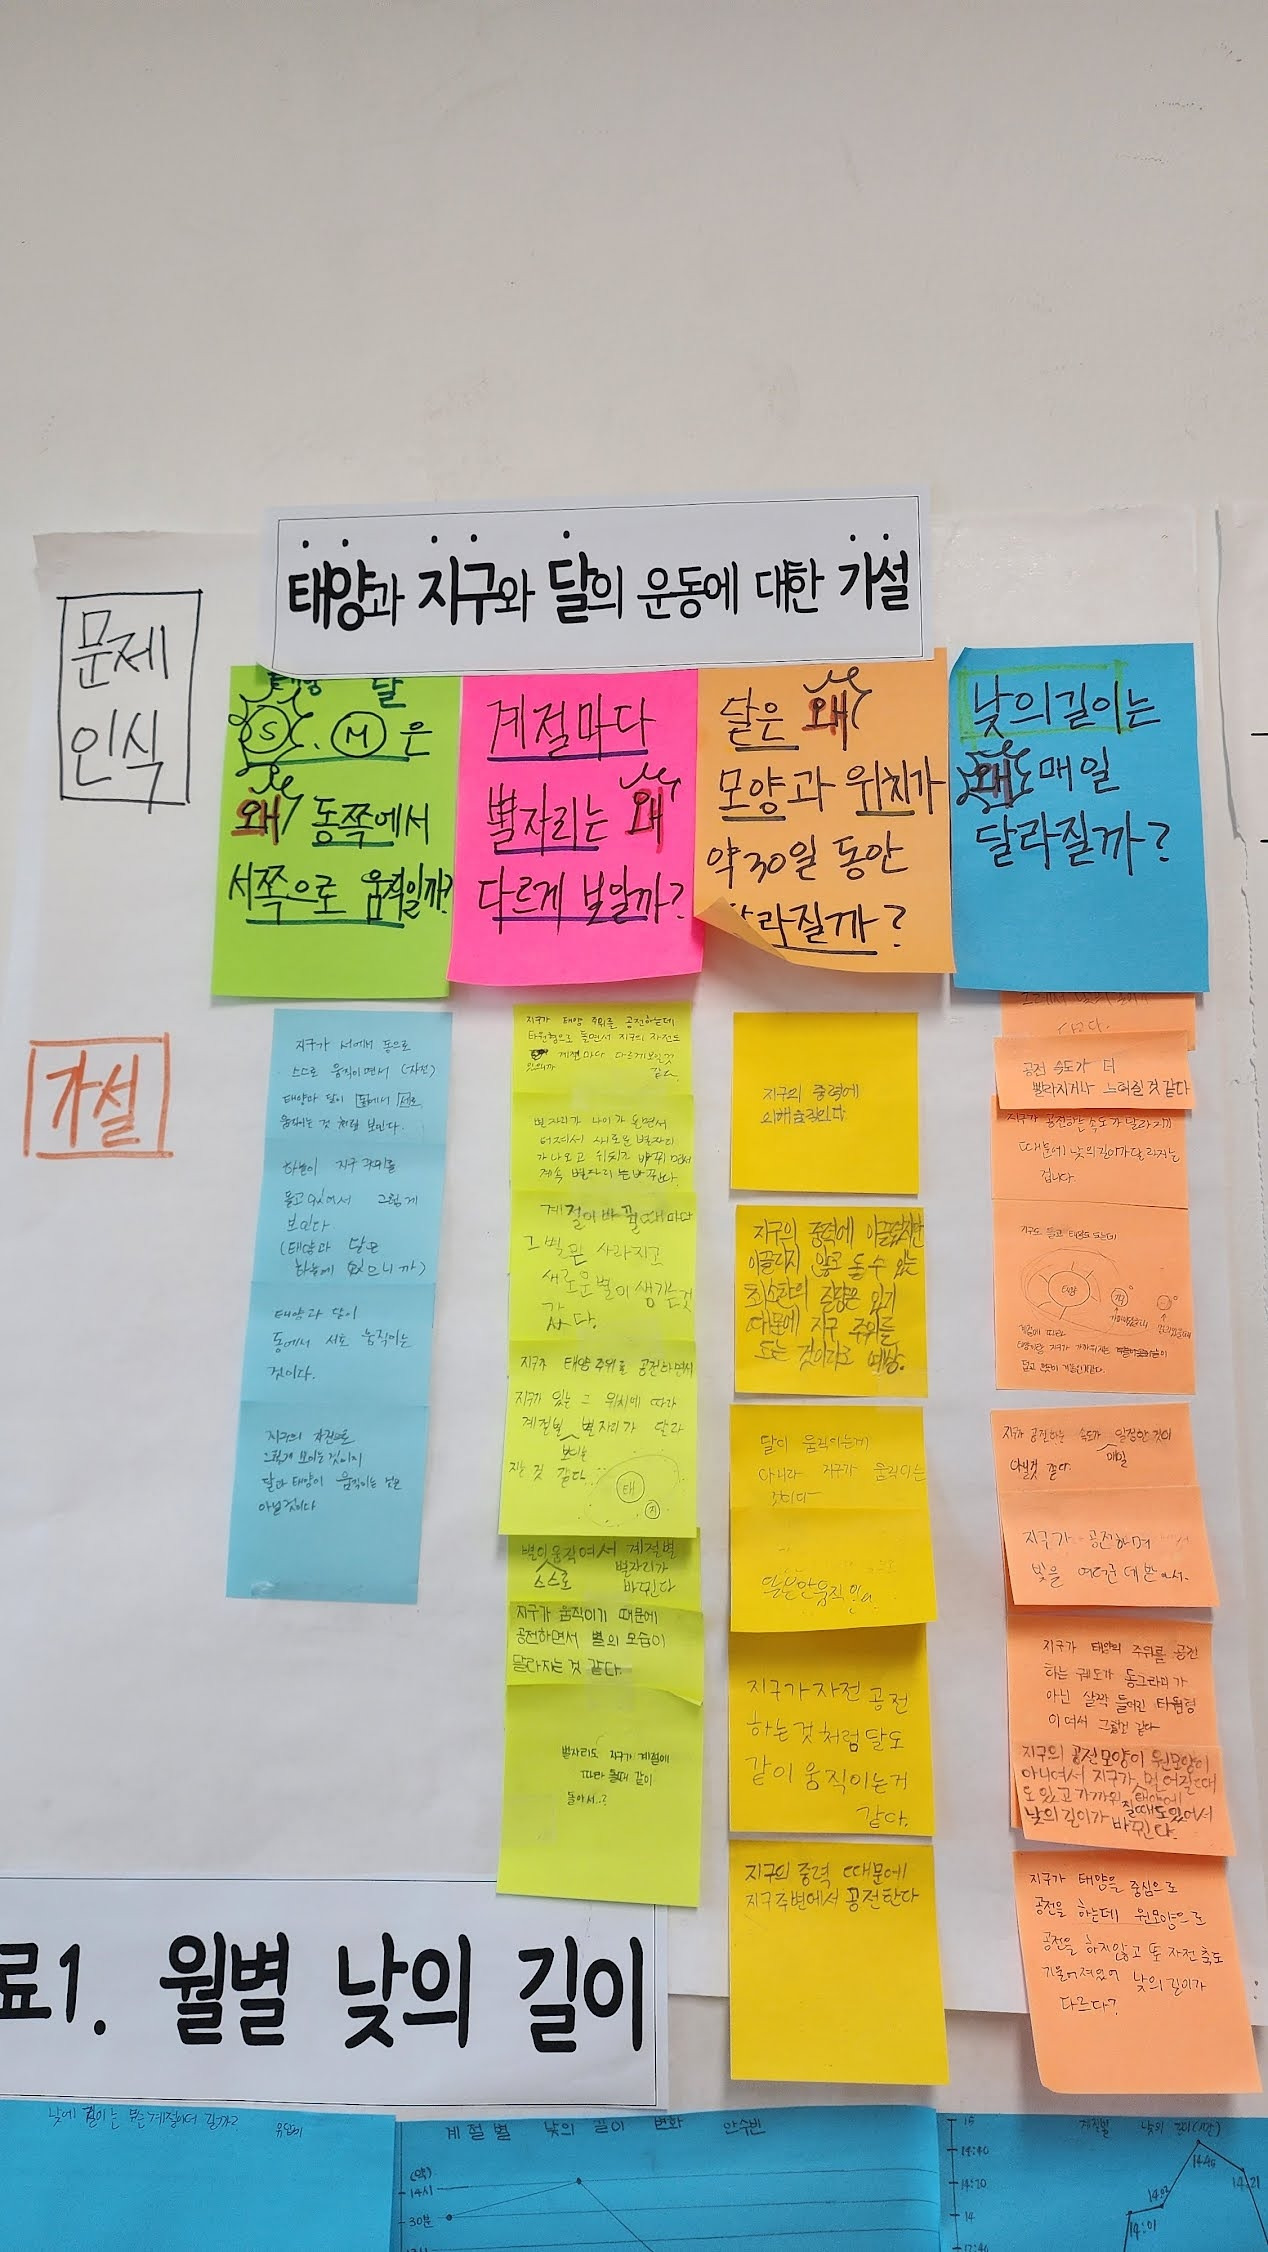 태양과 지구와 달의 운동에 대한 가설
문제
인식
태양 달
S. M은
왜 동쪽에서
서쪽으로 움직일까?
계절마다
별자리는 왜
다르게 보일까?
달은 왜
모양과 위치가
약 30일 동안
라질까?
낮의 길이는
왜 매일
달라질까?
가설
지구가 서에서 동으로
스스로 움직이면서 (자전)
태양과 달이 동에서 서로
움직이는 것 처럼 보인다.
하늘이 지구 주위를
돌고 있어서 그렇게
보인다
(태양과 달은
하늘에 있으니까)
태양과 달이
동에서 서로 움직이는
것이다.
지구의 자전으로
그렇게 보이는 것이지
달과 태양이 움직이는 것은
아닐것이다
지구가 태양 주위를 공전하는데
타원형으로 돌면서 지구의 자전도
계절마다 다르게보일것
같다.
별자리가 나이가 들면서
터져서 새로운 별자리
가 나오고 위치가 바뀌면서
계속 별자리는 바뀐다.
계절이 바뀔때마다
그 별은 사라지고
새로운별이 생기는것
같다.
지구가 태양 주위를 공전하면서
지구가 있는 그 위치에 따라
계절별 보이는 별자리가 달라
지는 것 같다.
태
지
별이 스스로 움직여서 계절별
별자리가
바뀐다
지구가 움직이기 때문에
공전하면서 별의 모습이
달라지는 것 같다.
별자리도 지구가 계절에
따라 돌때 같이
돌아서..?
지구의 중력에
의해 움직인다
지구의 중력에 이끌렸지만
이끌리지 않고 돌 수 있는
최소한의 질량은 있기
때문에 지구 주위를
도는 것이라고 예상.
달이 움직이는게
아니라 지구가 움직이는
것이다
달은 안움직인다.
지구가 자전 공전
하는 것 처럼 달도
같이 움직이는거
같다.
지구의 중력 때문에
지구주변에서 공전한다
공전 속도가 더
빨라지거나 느려질 것 같다
지구가 공전하는 속도가 달라지기
때문에 낮의길이가 달라지는
겁니다.
지구도 돌고 태양도 도는데
태양
지구가 공전하는 속도가 매일 일정한 것이
아닐것 같다.
지구가 공전하며
빛을 어떤 데
지구가 태양의 주위를 공전
하는 궤도가 동그라미가
아닌 살짝 타원형
이여서 그런것 같다
지구의 공전모양이 원모양이
아니여서 지구가 태양에 멀어질때
도 있고 가까워질때도있어서
낮의 길이가 바뀐다.
지구가 태양을 중심으로
공전을 하는데 원모양으로
공전을 하지않고 또 자전축도
기울어져있어 낮의 길이가
다르다?
료1. 월별 낮의 길이
낮에 길이는 무슨 계절이더 길까?
계절별 낮의 길이 변화 안수빈
14시
30분
계절별 낮의 길이(시간)
15
14:40
14:20
14
14:45
14:21
14:03
14:01